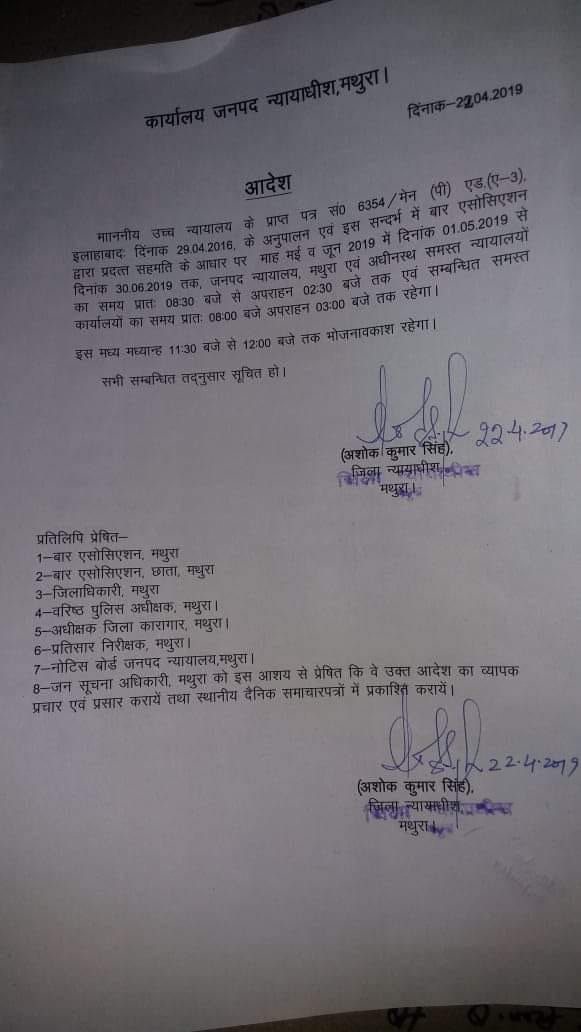 कार्यालय जनपद न्यायाधीश,मथुरा।
दिंनाक–22.04.2019
आदेश
मााननीय उच्च न्यायालय के प्राप्त पत्र सं0 6354/मेन (पी) एड.(ए–3),
इलाहाबादः दिंनाक 29.04.2016, के अनुपालन एवं इस सन्दर्भ में बार एसोसिएशन
द्वारा प्रदत्त सहमति के आधार पर माह मई व जून 2019 में दिनांक 01.05.2019 से
दिनांक 30.06.2019 तक, जनपद न्यायालय, मथुरा एवं अधीनस्थ समस्त न्यायालयों
का समय प्रातः 08:30 बजे से अपराहन 02:30 बजे तक एवं सम्बन्धित समस्त
कार्यालयों का समय प्रातः 08:00 बजे अपराहन 03:00 बजे तक रहेगा।
इस मध्य मध्यान्ह 11:30 बजे से 12:00 बजे तक भोजनावकाश रहेगा।
सभी सम्बन्धित तद्नुसार सूचित हो।
22.4.2019
(अशोक कुमार सिंह),
जिला न्यायाधीश,
मथुरा।
प्रतिलिपि प्रेषित–
1–बार एसोसिएशन, मथुरा
2–बार एसोसिएशन, छाता, मथुरा
3–जिलाधिकारी, मथुरा
4–वरिष्ठ पुलिस अधीक्षक, मथुरा।
5–अधीक्षक जिला कारागार, मथुरा।
6–प्रतिसार निरीक्षक, मथुरा।
7–नोटिस बोर्ड जनपद न्यायालय,मथुरा।
8–जन सूचना अधिकारी, मथुरा को इस आशय से प्रेषित कि वे उक्त आदेश का व्यापक
प्रचार एवं प्रसार करायें तथा स्थानीय दैनिक समाचारपत्रों में प्रकाशित करायें।
22.4.2019
(अशोक कुमार सिंह),
जिला न्यायाधीश,
मथुरा।